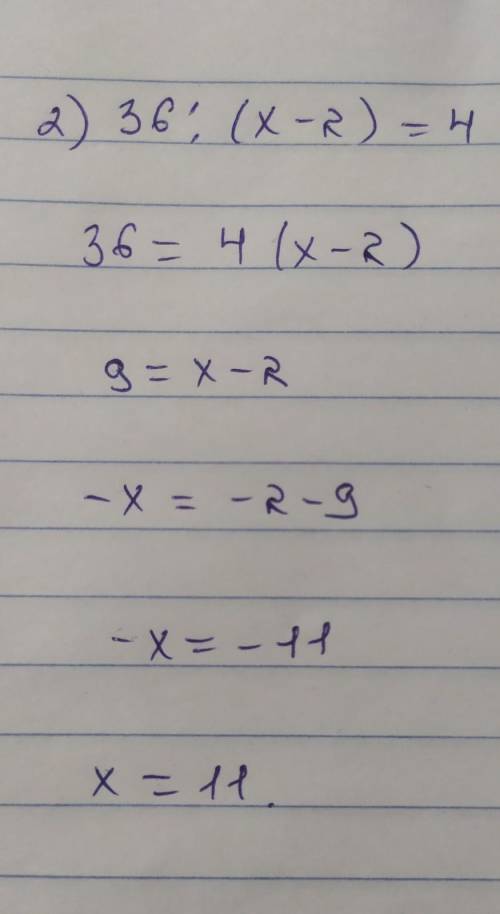 2) 36 : (x - 2) = 4
36 = 4 (x - 2)
9 = x - 2
- x = - 2 - 9
- x = - 11
x = 11.